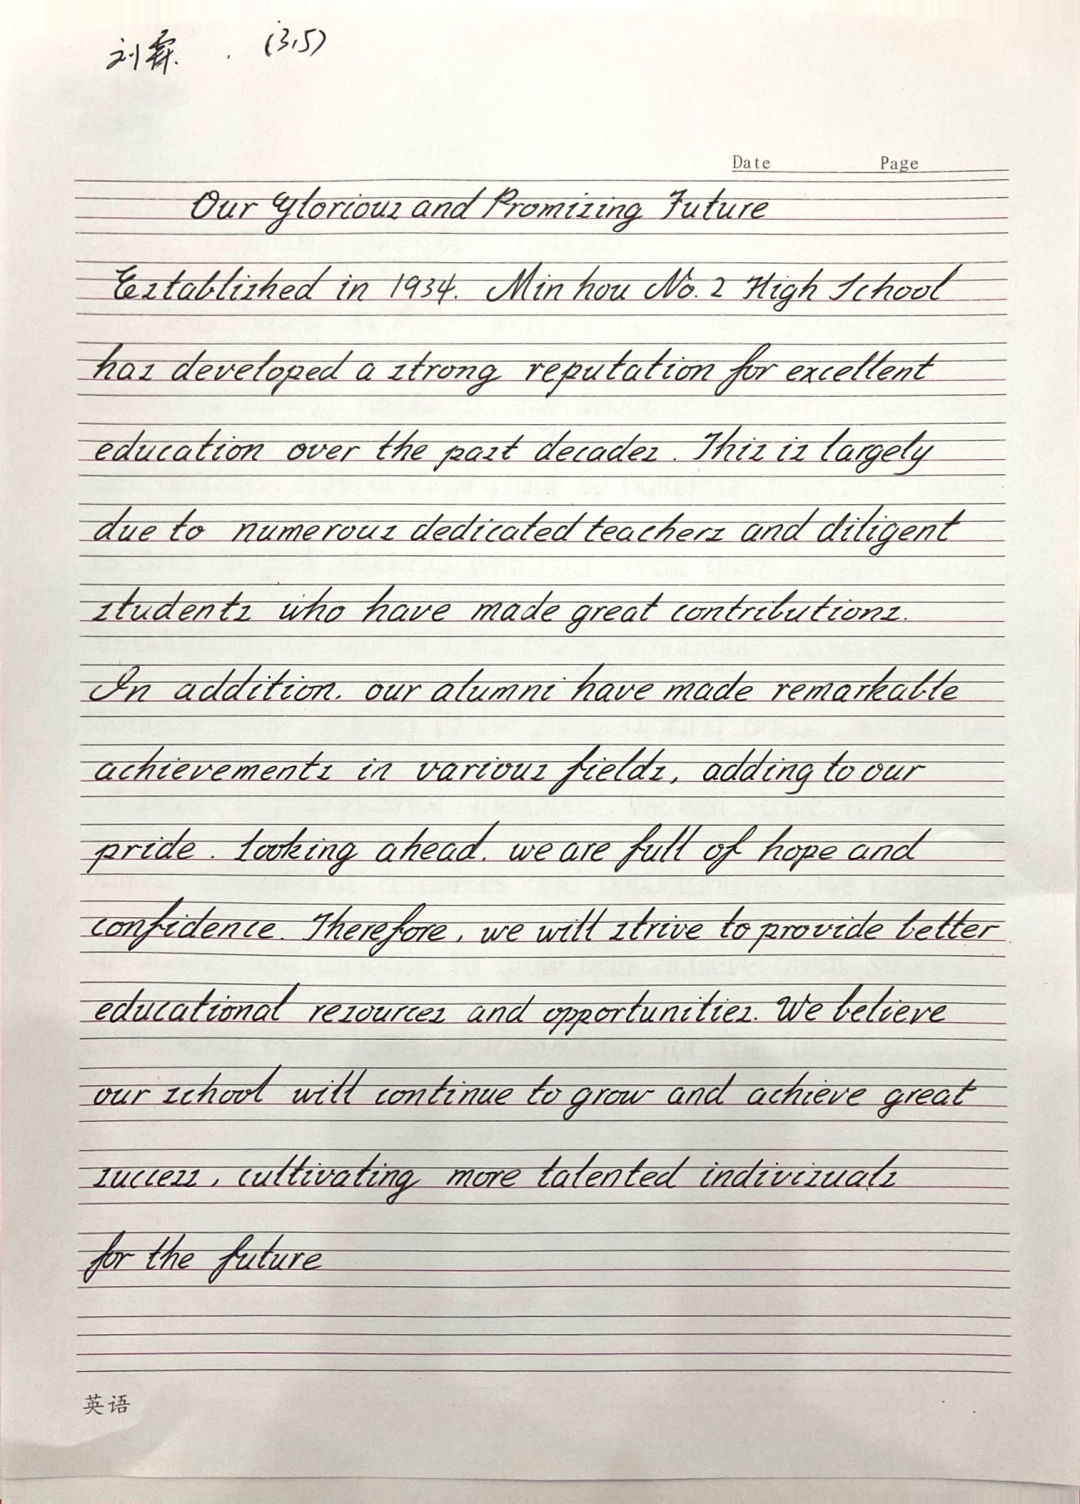 刘霖. . (3,5)
Date Page
Our Glorious and Promising Future
Established in 1934. Min hou No. 2 High School
has developed a strong reputation for excellent
education over the past decades. This is largely
due to numerous dedicated teachers and diligent
students who have made great contributions.
In addition. our alumni have made remarkable
achievements in various fields, adding to our
pride. Looking ahead. we are full of hope and
confidence. Therefore, we will strive to provide better
educational resources and opportunities. We believe
our school will continue to grow and achieve great
success, cultivating more talented indivisuals
for the future
英语